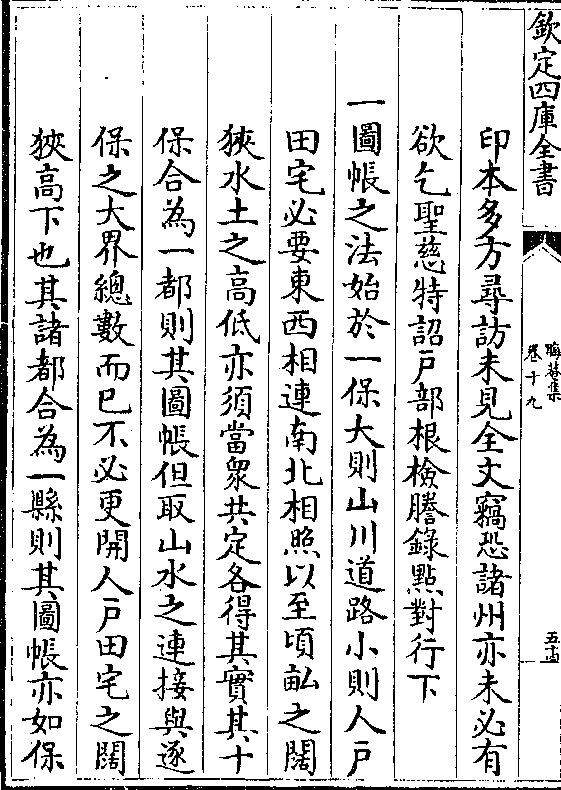 欽定四庫全書
晦菴集
卷十九
印本多方尋訪未見全文竊恐諸州亦未必有
欲乞聖慈特詔戸部根檢謄錄點對行下
一圖帳之法始於一保大則山川道路小則人戸
田宅必要東西相連南北相照以至頃畝之闊
狹水土之髙低亦須當衆共定各得其實其十
保合為一都則其圖帳但取山水之連接與逐
保之大界總數而已不必更開人戸田宅之闊
狹髙下也其諸都合為一縣則其圖帳亦如保